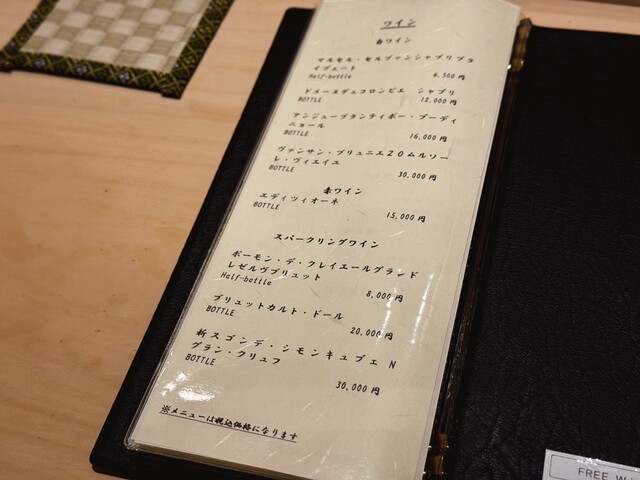 ワイン
白ワイン
マルセル・セルヴァンシャブリプラ
イブェート
Half-bottle 6,500 円
ドメーヌデュコロンビエ シャブリ
BOTTLE 12,000 円
アンジューブランティボー・ブーディ
ニョール
BOTTLE 16,000 円
ヴァンサン・ブリュニエ20ムルソー
レ・ヴィエイユ
BOTTLE 30,000 円
赤ワイン
エディツィオーネ
BOTTLE 15,000 円
スパークリングワイン
ボーモン・デ・クレイエールグランド
レゼルヴブリュット
Half-bottle 8,000 円
ブリュットカルト・ドール
BOTTLE 20,000 円
新スゴンデ・シモンキュブェ N
グラン・クリュフ
BOTTLE 30,000 円
※メニューは税込価格になります
FREE